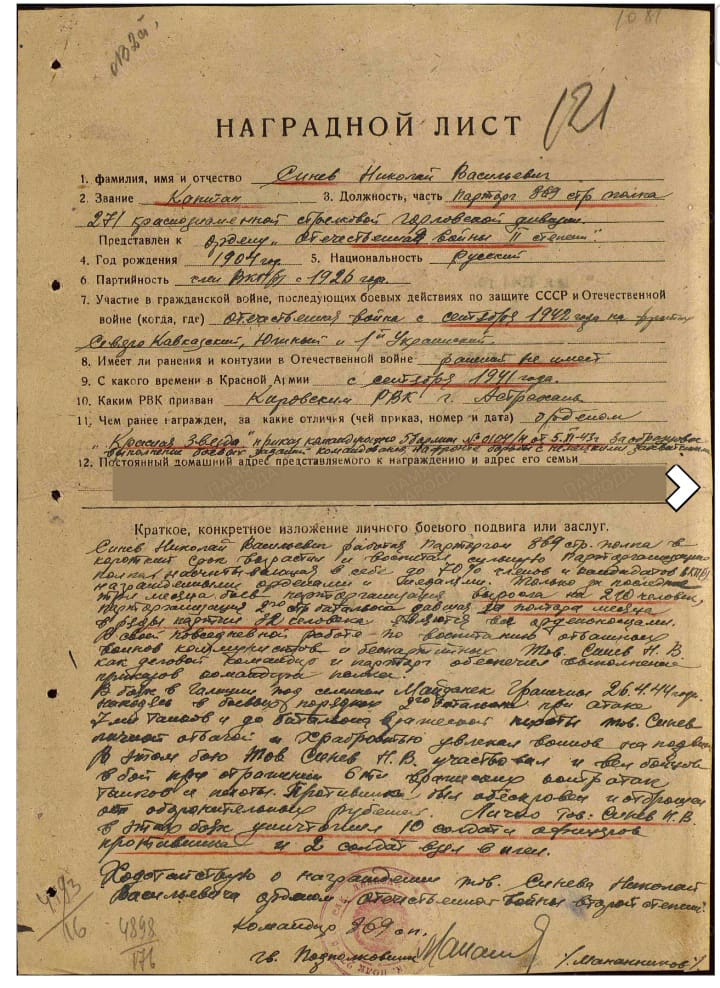 121
НАГРАДНОЙ ЛИСТ
1. Фамилия, имя и отчество Синев Николай Васильевич
2. Звание Капитан 3. Должность, часть Парторг 869 стр полка
271 краснознаменной стрелковой Горловской дивизии.
Представлен к ордену „Отечественная войны II степени".
4. Год рождения 1904 год 5. Национальность Русский
6. Партийность член ВКП(б) с 1926 года.
7. Участие в гражданской войне, последующих боевых действиях по защите СССР и Отечественной
войне (когда, где) отечественная война с сентября 1942 года на фронтах
Северо Кавказский, Южный и 1й Украинский.
8. Имеет ли ранения и контузии в Отечественной войне ранений не имеет
9. С какого времени в Красной Армии с сентября 1941 года.
10. Каким РВК призван Кировским РВК г. Астрахань
11. Чем ранее награжден, за какие отличия (чей приказ, номер и дата) орденом
„Красная Звезда" приказ 5 Армии № 0104/н от 5.XI-43г за образцовое
выполнение боевых заданий командования на фронте борьбы с немецкими
12. Постоянный домашний адрес представляемого к награждению и адрес его семьи
Краткое, конкретное изложение личного боевого подвига или заслуг.
Синев Николай Васильевич работая Парторгом 869 стр. полка в
короткий срок вырастил и воспитал сильную Парторганизацию
полка насчитывающая в себе до 70% членов и кандидатов ВКП(б)
награжденными орденами и медалями. Только за последние
три месяца боев парторганизация выросла на 210 человек,
парторганизация 2го стр батальона давшая за полтора месяца
в ряды партии 82 человека является вся орденоносцами.
В своей повседневной работе по воспитанию отважных
воинов коммунистов и беспартийных Тов. Синев Н. В.
как деловой командир и парторг обеспечил выполнение
приказов командира полка.
В боях в Галиции под селением Майданек 26.4.44 года
находясь в боевых порядках 2го батальона при атаке
7 ми танков и до батальона вражеской пехоты тов. Синев
личной отвагой и храбростью увлекал воинов на подвиги.
В этом бою Тов Синев Н. В. участвовал и вел бойцов
в бой при отражении 6 ти вражеских контратак
танков и пехоты. Противник был обескровлен и отброшен
от оборонительных рубежей. Лично Тов. Синев Н. В.
в этих боях уничтожил 10 солдат и офицеров
противника и 2 солдат взял в плен.
Ходатайствую о награждении тов. Синева Николай
Васильевича орденом отечественной войны второй степени.
Командир 869 сп.
гв. Подполковник /Мананников/
4898